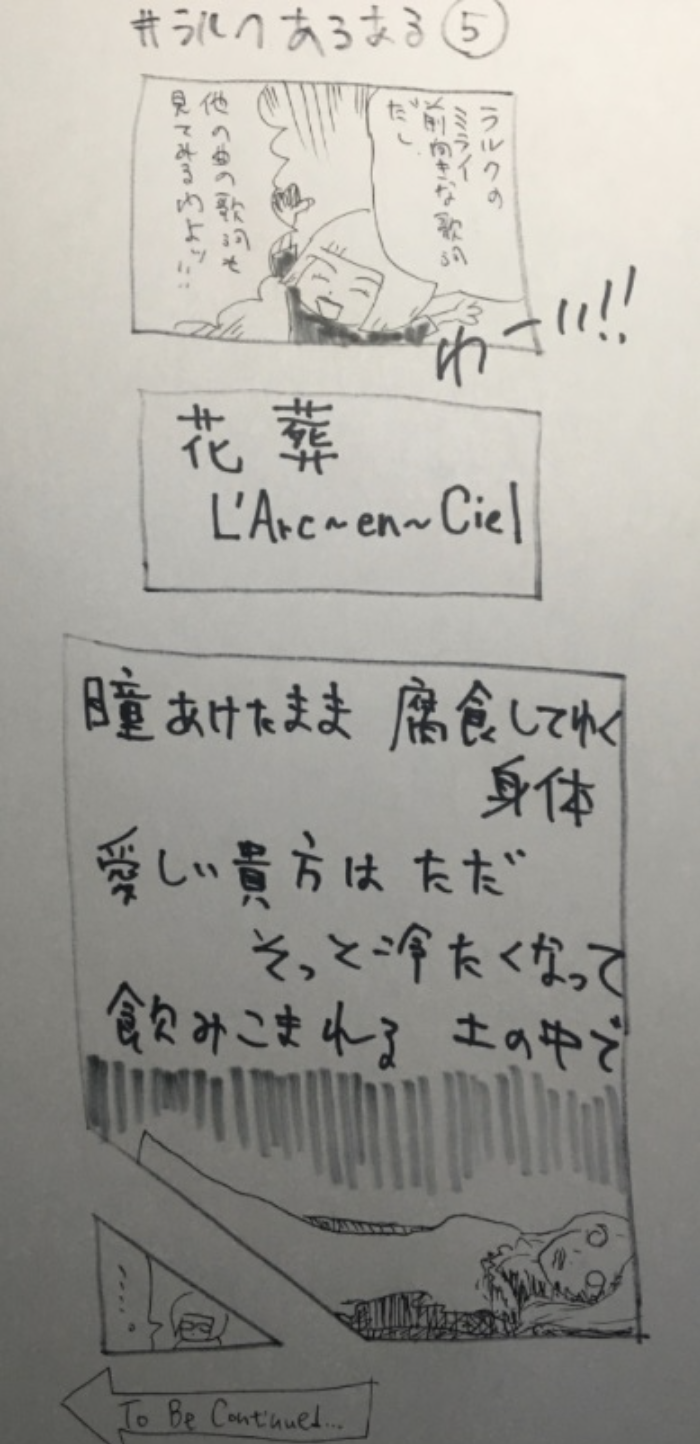 #ラルクあるある⑤
ラルクの
ミライ
前向きな歌詞
だし
他の曲の歌詞も
見てみるわよッ…
わーッ!!
花葬
L'Arc~en~Ciel
瞳あけたまま 腐食してゆく
身体
愛しい貴方は ただ
そっと冷たくなって
飲みこまれる 土の中で
・・・・。
To Be Continued...